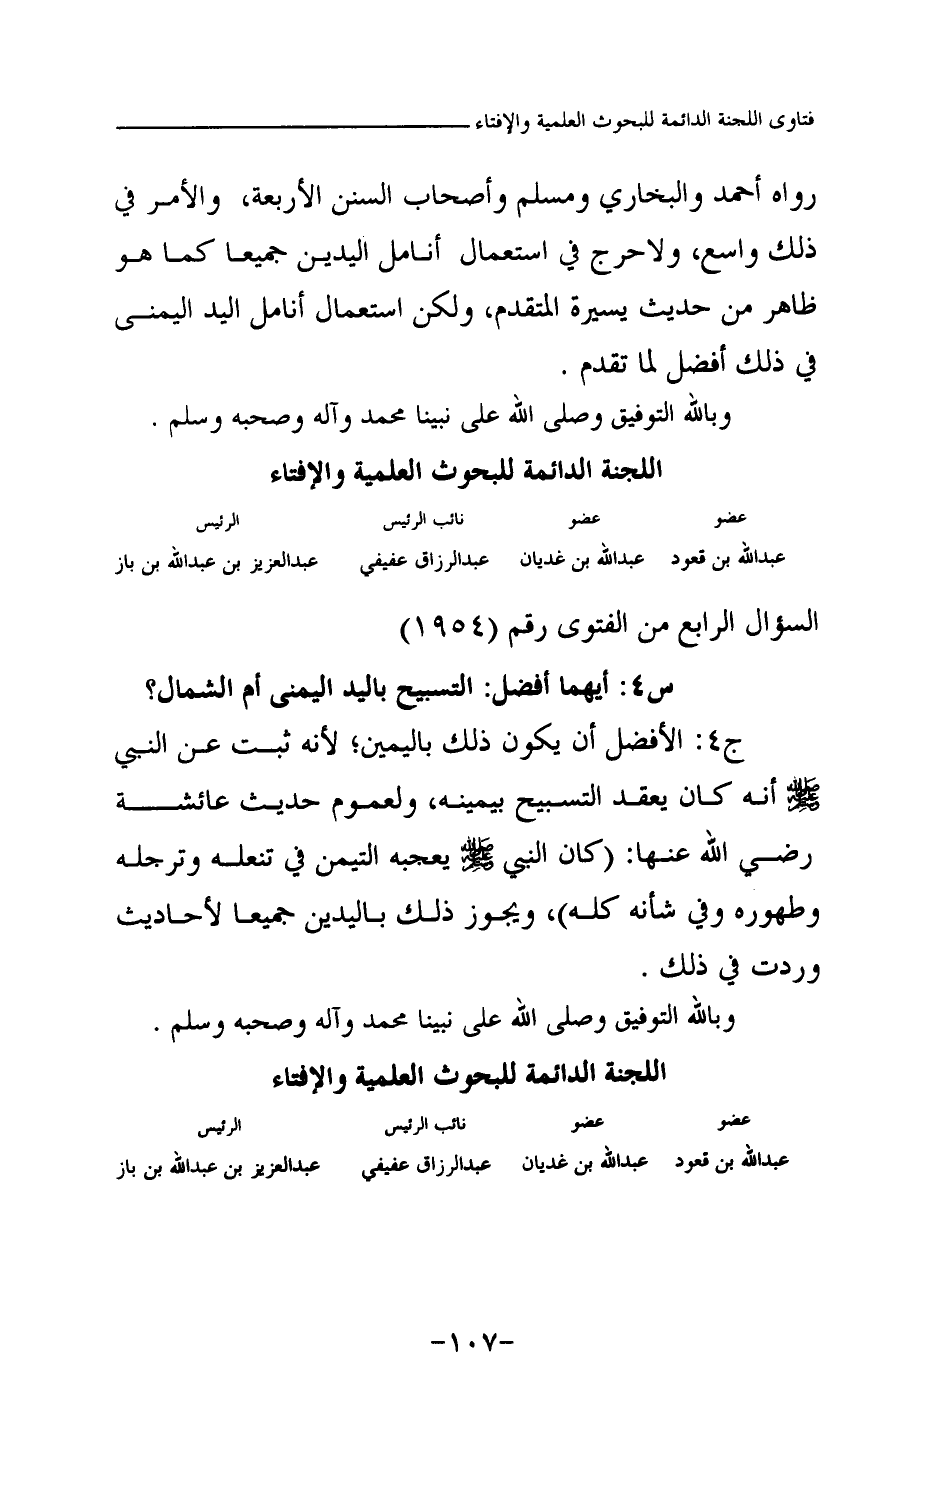 فتاوى اللجنة الدائمة للبحوث العلمية والإفتاء
رواه أحمد والبخاري ومسلم وأصحاب السنن الأربعة، والأمر في
ذلك واسع، ولاحرج في استعمال أنامل اليدين جميعا كما هو
ظاهر من حديث يسيرة المتقدم، ولكن استعمال أنامل اليد اليمنى
في ذلك أفضل لما تقدم .
وبالله التوفيق وصلى الله على نبينا محمد وآله وصحبه وسلم .
اللجنة الدائمة للبحوث العلمية والإفتاء
عضو عضو نائب الرئيس الرئيس
عبدالله بن قعود عبدالله بن غديان عبدالرزاق عفيفي عبدالعزيز بن عبدالله بن باز
السؤال الرابع من الفتوى رقم (١٩٥٤)
س٤: أيهما أفضل: التسبيح باليد اليمنى أم الشمال؟
ج٤: الأفضل أن يكون ذلك باليمين؛ لأنه ثبت عن النبي
ﷺ أنه كان يعقد التسبيح بيمينه، ولعموم حديث عائشة
رضي الله عنها: (كان النبي ﷺ يعجبه التيمن في تنعله وترجله
وطهوره وفي شأنه كله)، ويجوز ذلك باليدين جميعا لأحاديث
وردت في ذلك .
وبالله التوفيق وصلى الله على نبينا محمد وآله وصحبه وسلم .
اللجنة الدائمة للبحوث العلمية والإفتاء
عضو عضو نائب الرئيس الرئيس
عبدالله بن قعود عبدالله بن غديان عبدالرزاق عفيفي عبدالعزيز بن عبدالله بن باز
-١٠٧-